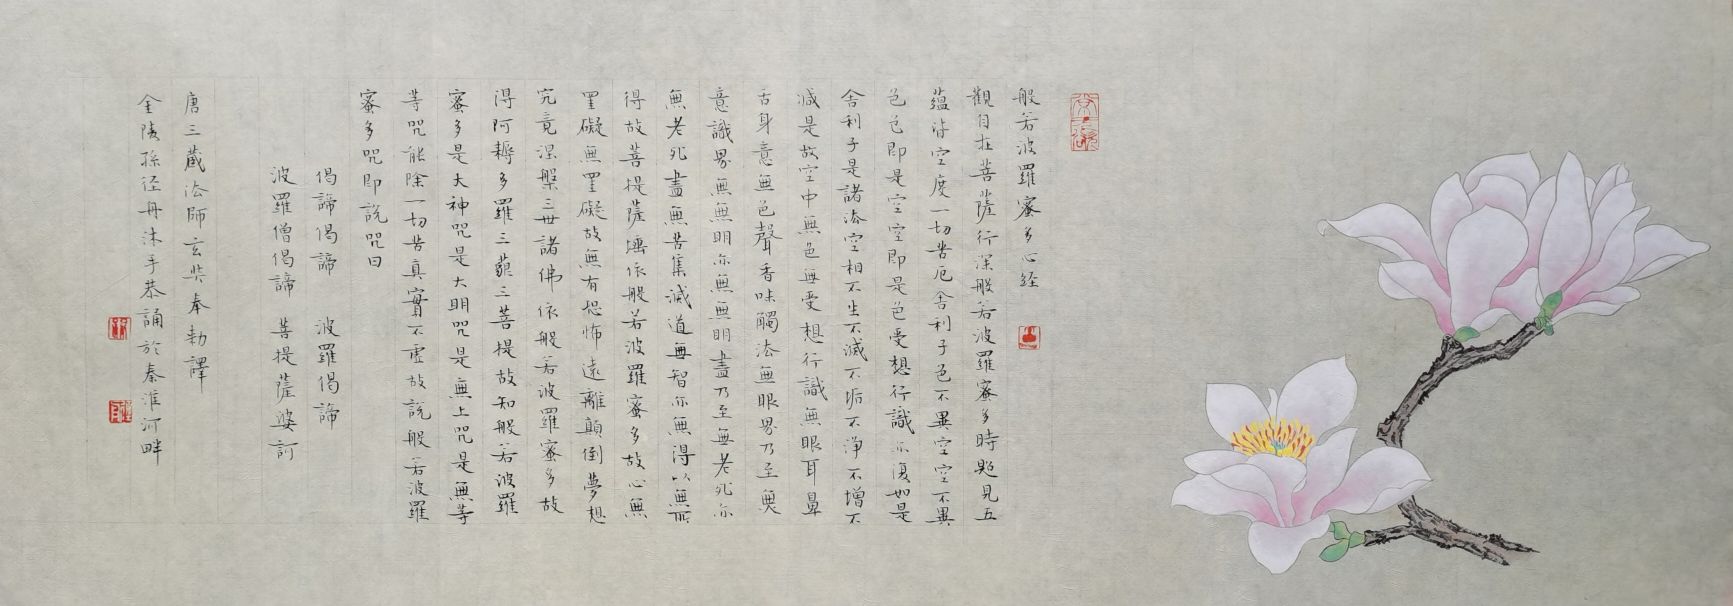 般若波羅蜜多心經
觀自在菩薩行深般若波羅蜜多時照見五
蘊皆空度一切苦厄舍利子色不異空空不異
色色即是空空即是色受想行識亦復如是
舍利子是諸法空相不生不滅不垢不淨不增不
減是故空中無色無受想行識無眼耳鼻
舌身意無色聲香味觸法無眼界乃至無
意識界無無明亦無無明盡乃至無老死亦
無老死盡無苦集滅道無智亦無得以無所
得故菩提薩埵依般若波羅蜜多故心無
罣礙無罣礙故無有恐怖遠離顛倒夢想
究竟涅槃三世諸佛依般若波羅蜜多故
得阿耨多羅三藐三菩提故知般若波羅
蜜多是大神咒是大明咒是無上咒是無等
等咒能除一切苦真實不虛故說般若波羅
蜜多咒即說咒曰
偈諦偈諦 波羅偈諦
波羅僧偈諦 菩提薩婆訶
唐三藏法師玄奘奉勅譯
金陵孫徑舟沐手恭誦於秦淮河畔